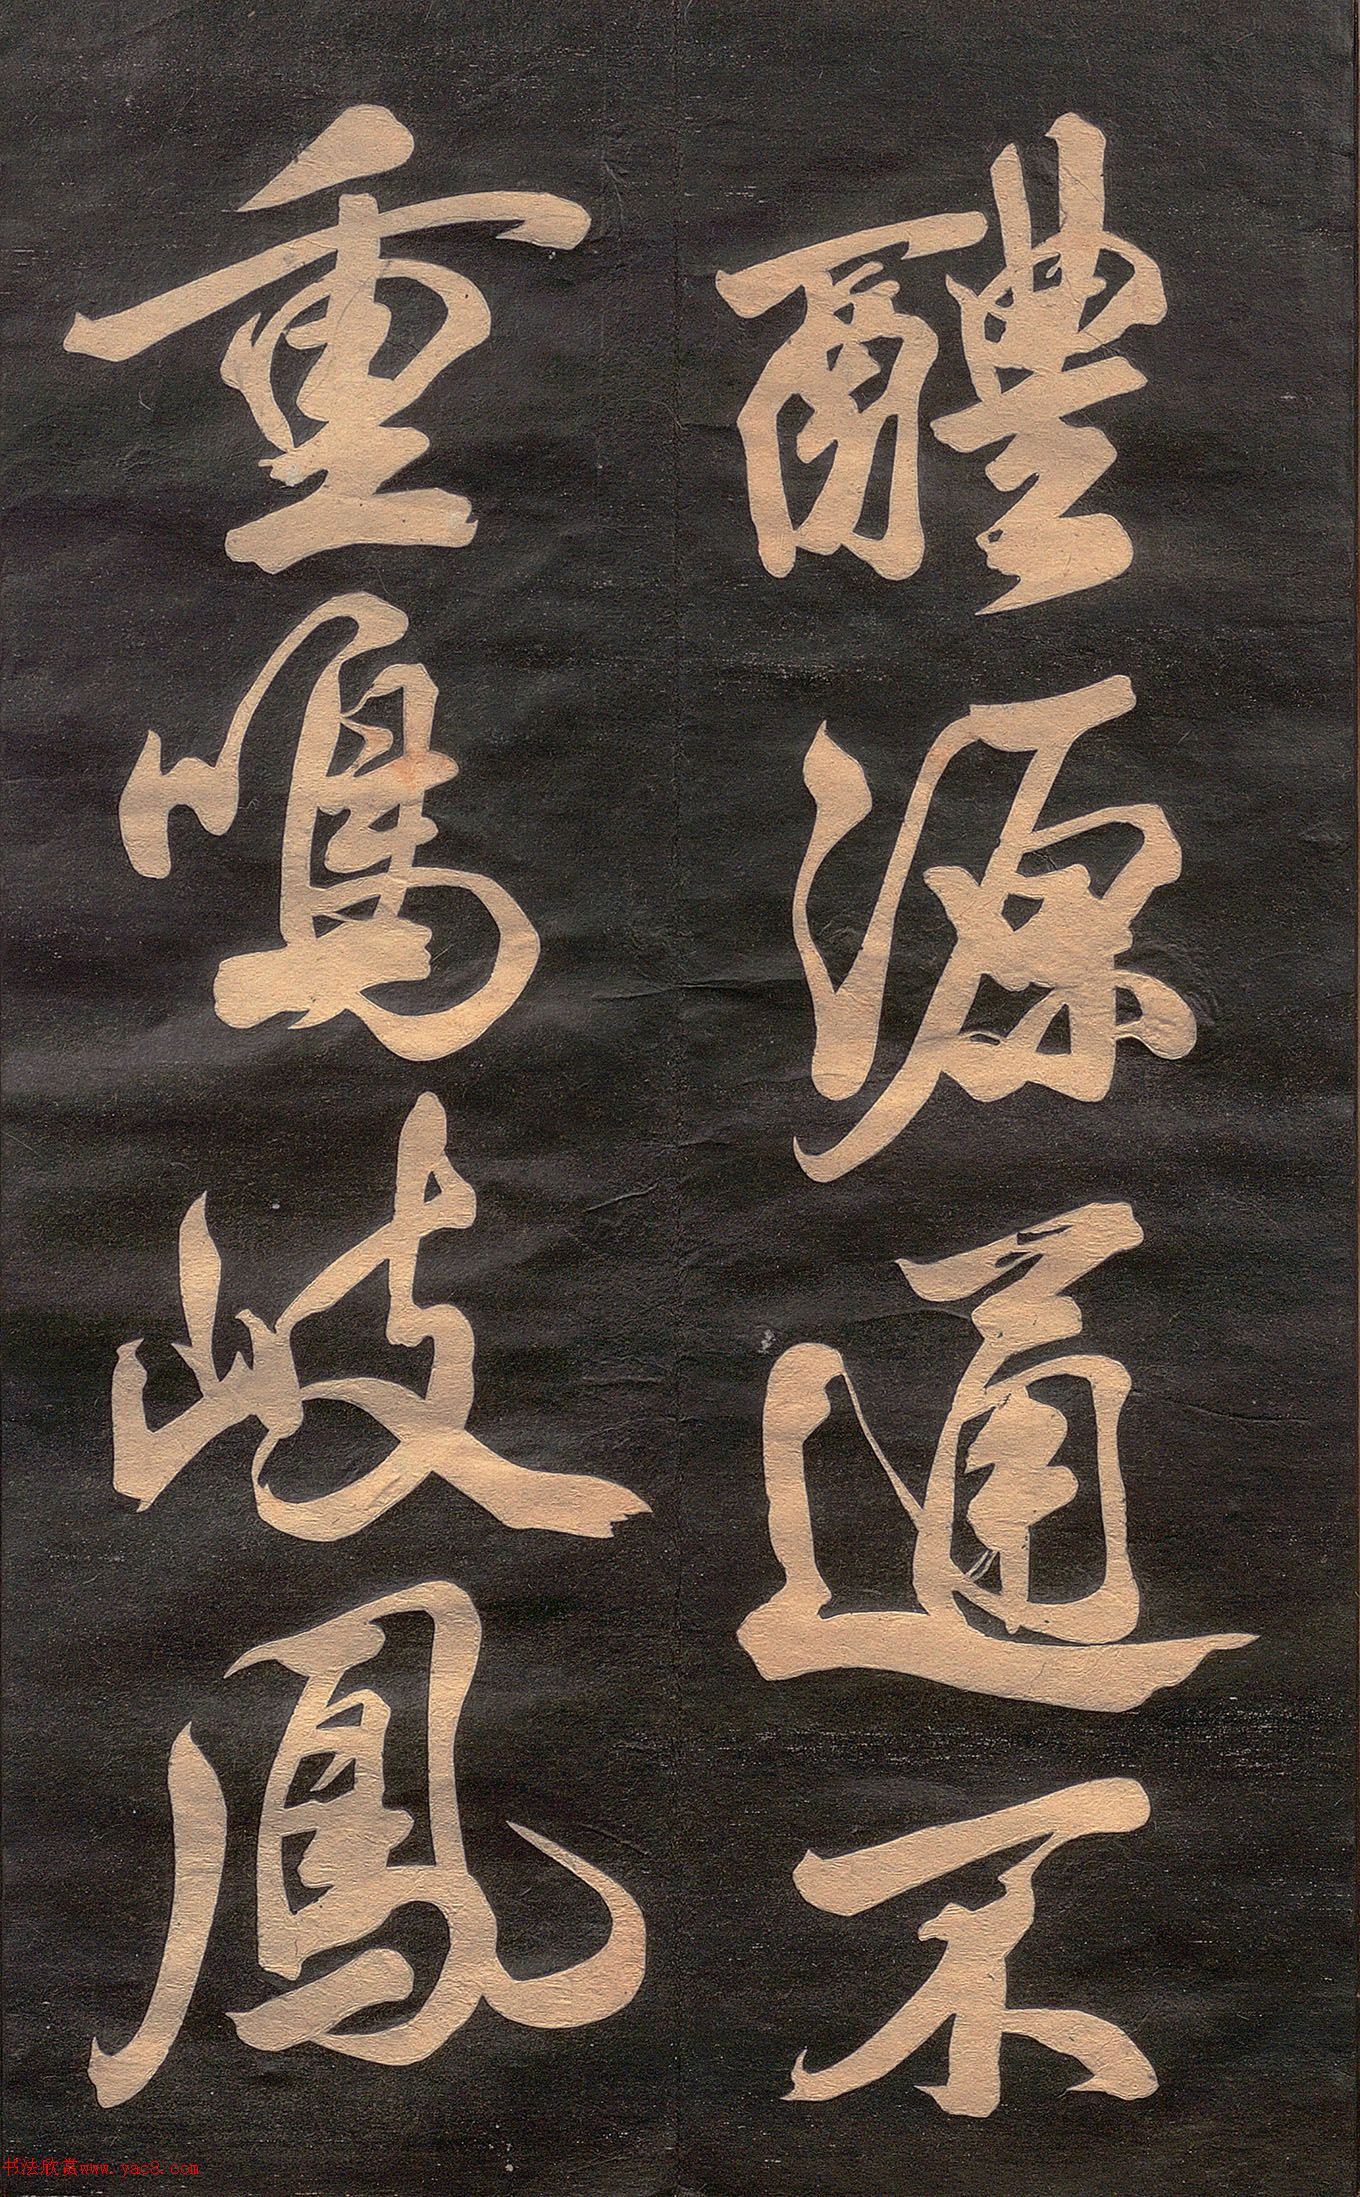 醴源通不
重鳴岐鳳
书法欣赏www.yac8.com